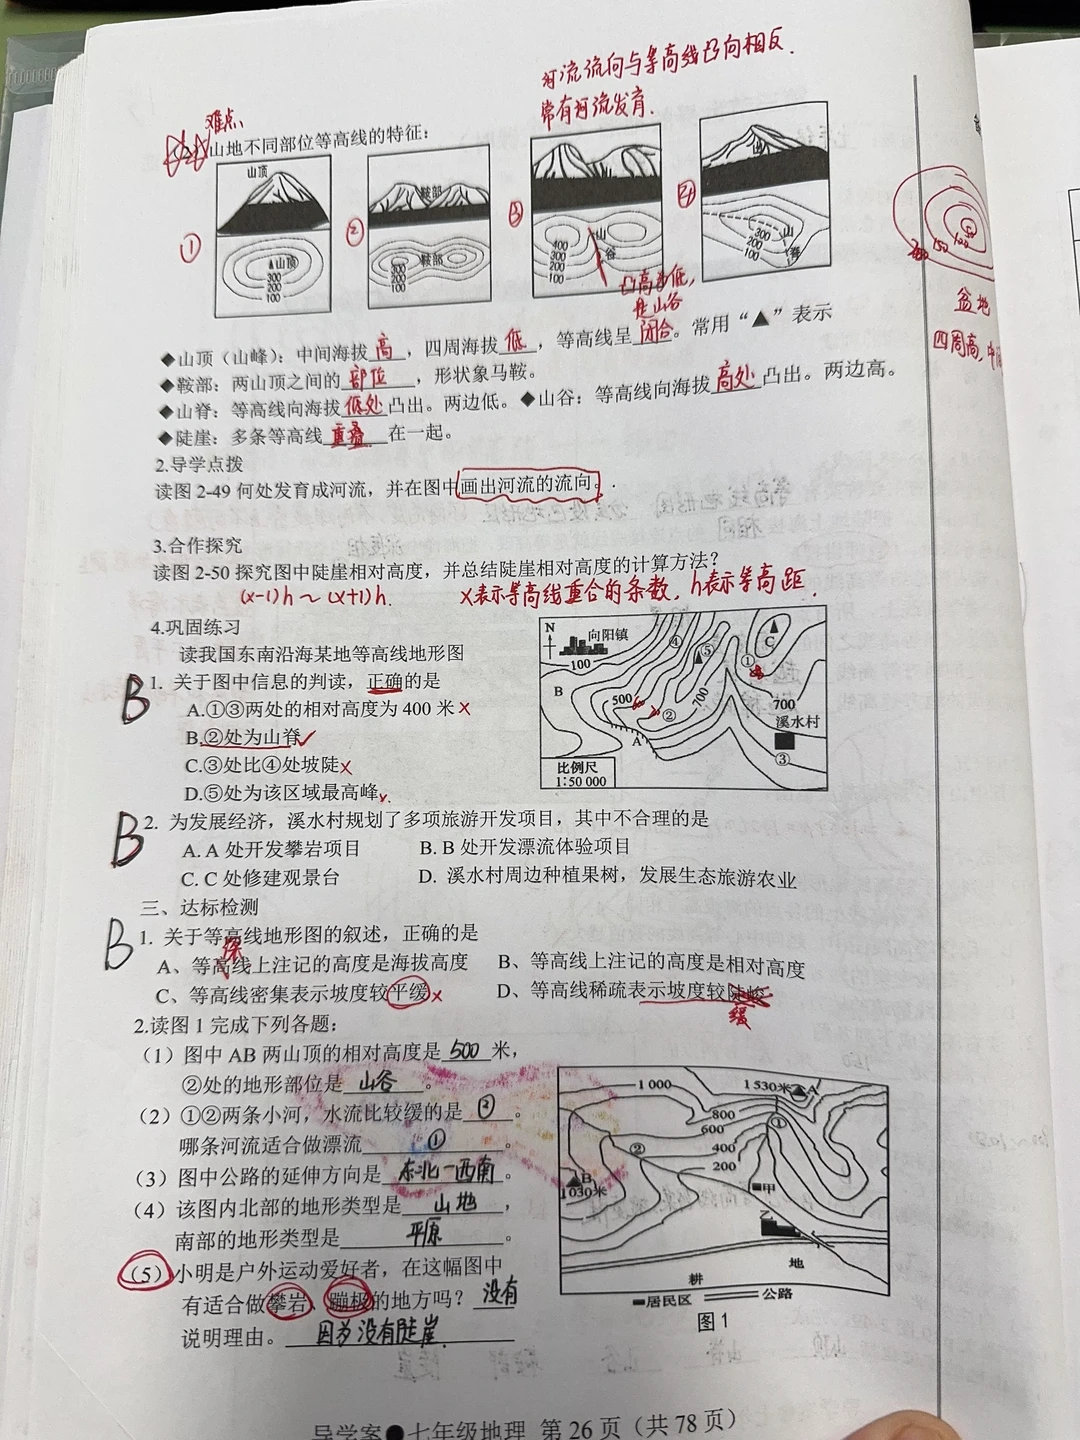 河流流向与等高线凸向相反.
常有河流发育.
难点
山地不同部位等高线的特征：
山顶
鞍部
① ② ③ ④
▲山顶
300
200
100
鞍部
300
200
100
山谷
400
300
200
100
山脊
300
200
100
凸高为低,
是山谷
150 100 50
盆地
四周高,
◆山顶（山峰）：中间海拔高，四周海拔低，等高线呈闭合。常用“▲”表示
◆鞍部：两山顶之间的部位，形状象马鞍。
◆山脊：等高线向海拔低处凸出。两边低。◆山谷：等高线向海拔高处凸出。两边高。
◆陡崖：多条等高线重叠在一起。
2.导学点拨
读图 2-49 何处发育成河流，并在图中画出河流的流向。
3.合作探究
读图 2-50 探究图中陡崖相对高度，并总结陡崖相对高度的计算方法？
(x-1)h ~ (x+1)h. x表示等高线重合的条数, h表示等高距.
4.巩固练习
读我国东南沿海某地等高线地形图
B 1. 关于图中信息的判读，正确的是
A.①③两处的相对高度为 400 米 ×
B.②处为山脊 ✓
C.③处比④处坡陡 ×
D.⑤处为该区域最高峰 ×
N
向阳镇
100
B
500
②
A
④
▲⑤
700
①
▲
C
700
溪水村
③
比例尺
1:50 000
B 2. 为发展经济，溪水村规划了多项旅游开发项目，其中不合理的是
A. A 处开发攀岩项目 B. B 处开发漂流体验项目
C. C 处修建观景台 D. 溪水村周边种植果树，发展生态旅游农业
三、达标检测
B 1. 关于等高线地形图的叙述，正确的是
A、等高线上注记的高度是海拔高度 B、等高线上注记的高度是相对高度
C、等高线密集表示坡度较平缓 × D、等高线稀疏表示坡度较陡峻
缓
2.读图 1 完成下列各题：
（1）图中 AB 两山顶的相对高度是500米，
②处的地形部位是山谷。
（2）①②两条小河，水流比较缓的是②。
哪条河流适合做漂流①。
（3）图中公路的延伸方向是东北—西南。
（4）该图内北部的地形类型是山地，
南部的地形类型是平原。
（5）小明是户外运动爱好者，在这幅图中
有适合做攀岩、蹦极的地方吗？没有
说明理由。因为没有陡崖
1 000
1 530米▲A
800
600
400
200
①
②
▲B
1030米
甲
乙
地
耕
居民区 公路
图 1
导学案●七年级地理 第 26 页（共 78 页）